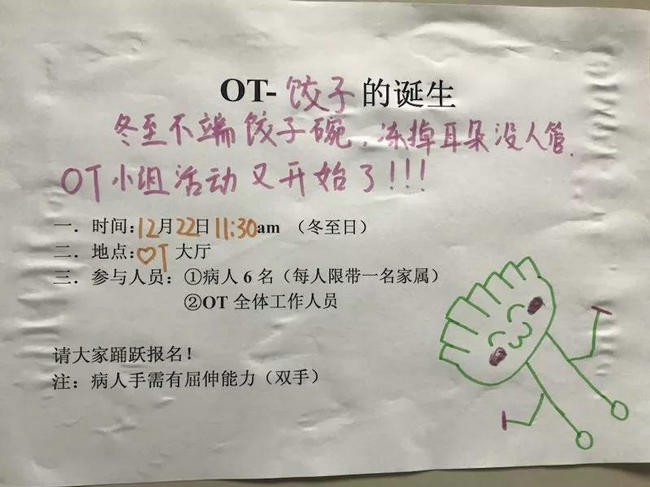 OT-饺子的诞生
冬至不端饺子碗,冻掉耳朵没人管.
OT小组活动又开始了!!!
一．时间:12月22日11:30am （冬至日）
二．地点:OT大厅
三．参与人员：①病人6名（每人限带一名家属）
②OT全体工作人员
请大家踊跃报名！
注：病人手需有屈伸能力（双手）